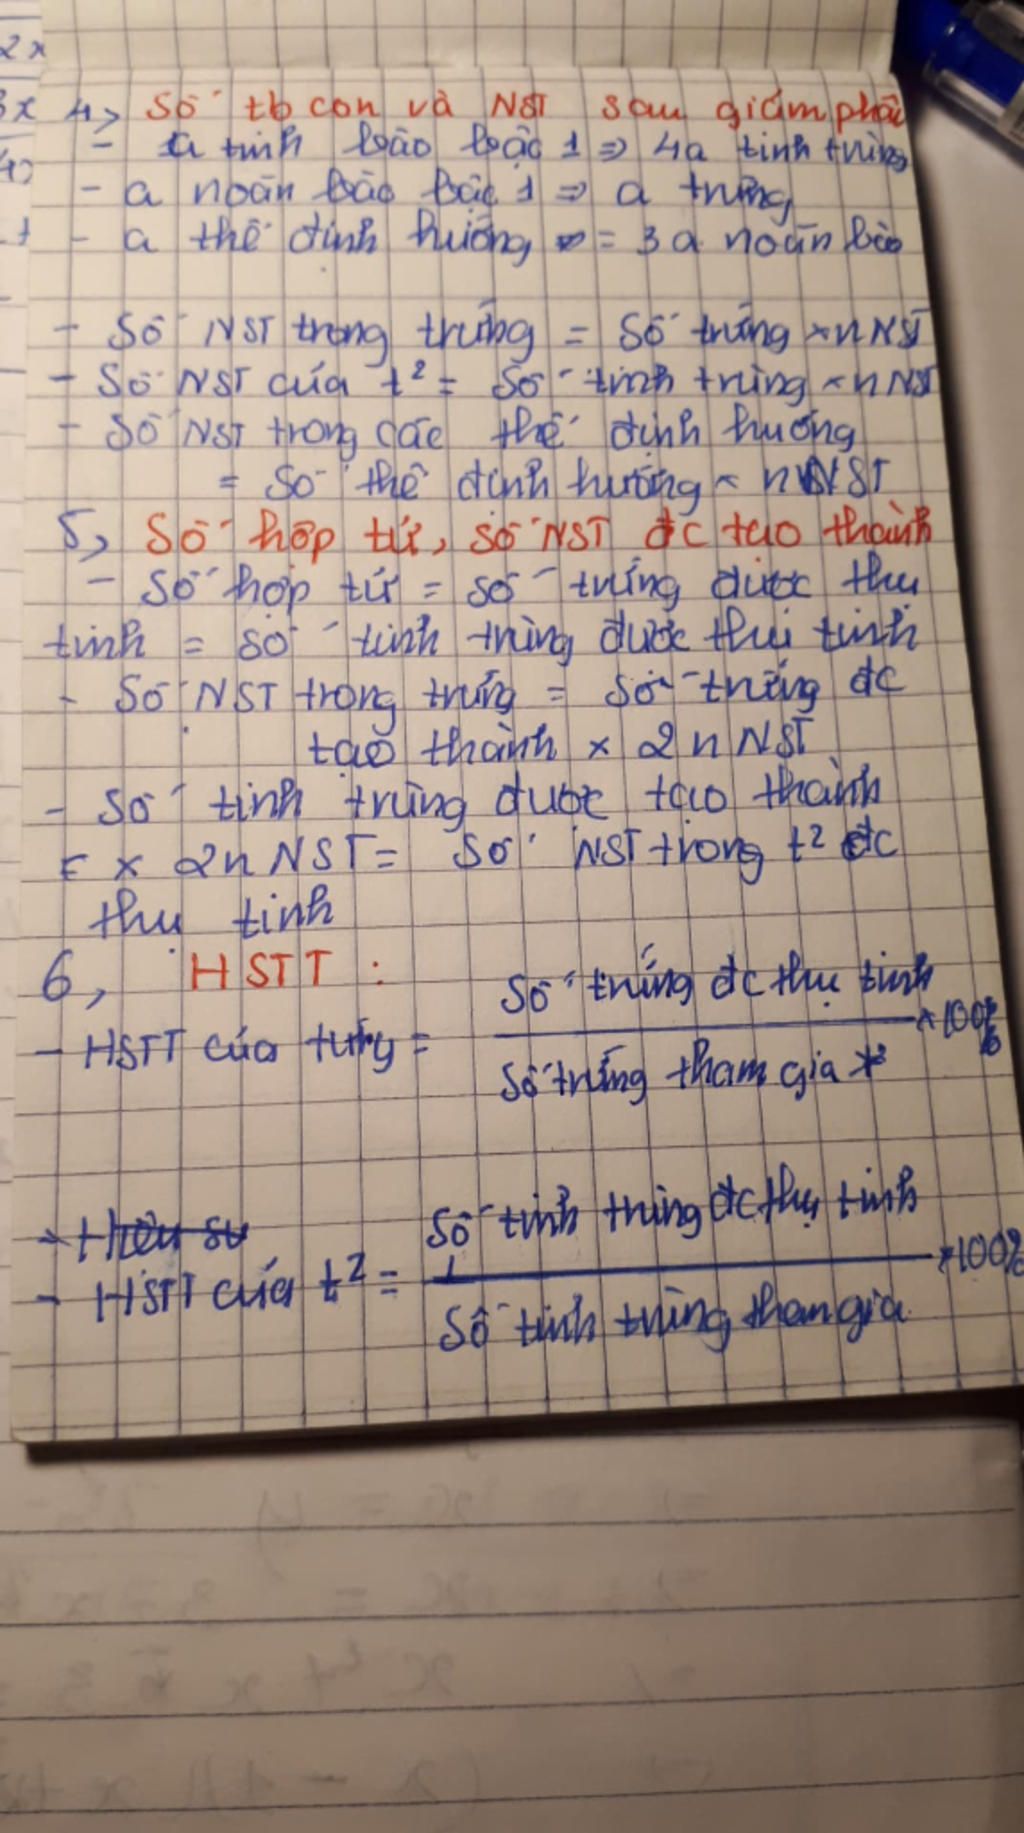 2x
3x
4, Số tb con và NST sau giảm phân
- a tinh bào bậc 1 => 4a tinh trùng
- a noãn bào bậc 1 => a trứng
- a thể định hướng = 3a noãn bào
- Số NST trong trứng = Số trứng × n NST
- Số NST của t² = Số tinh trùng × n NST
- Số NST trong các thể định hướng
= Số thể định hướng × n NST
5, Số hợp tử, số NST đc tạo thành
- Số hợp tử = số trứng được thụ
tinh = số tinh trùng được thụ tinh
- Số NST trong trứng = Số trứng đc
tạo thành × 2n NST
- Số tinh trùng được tạo thành
× 2n NST = Số NST trong t² đc
thụ tinh
6, HSTT :
Số trứng đc thụ tinh
- HSTT của = × 100%
Số trứng tham gia
- Hiệu su
Số tinh trùng đc thụ tinh
- HSTT của t² = × 100%
Số tinh trùng tham gia